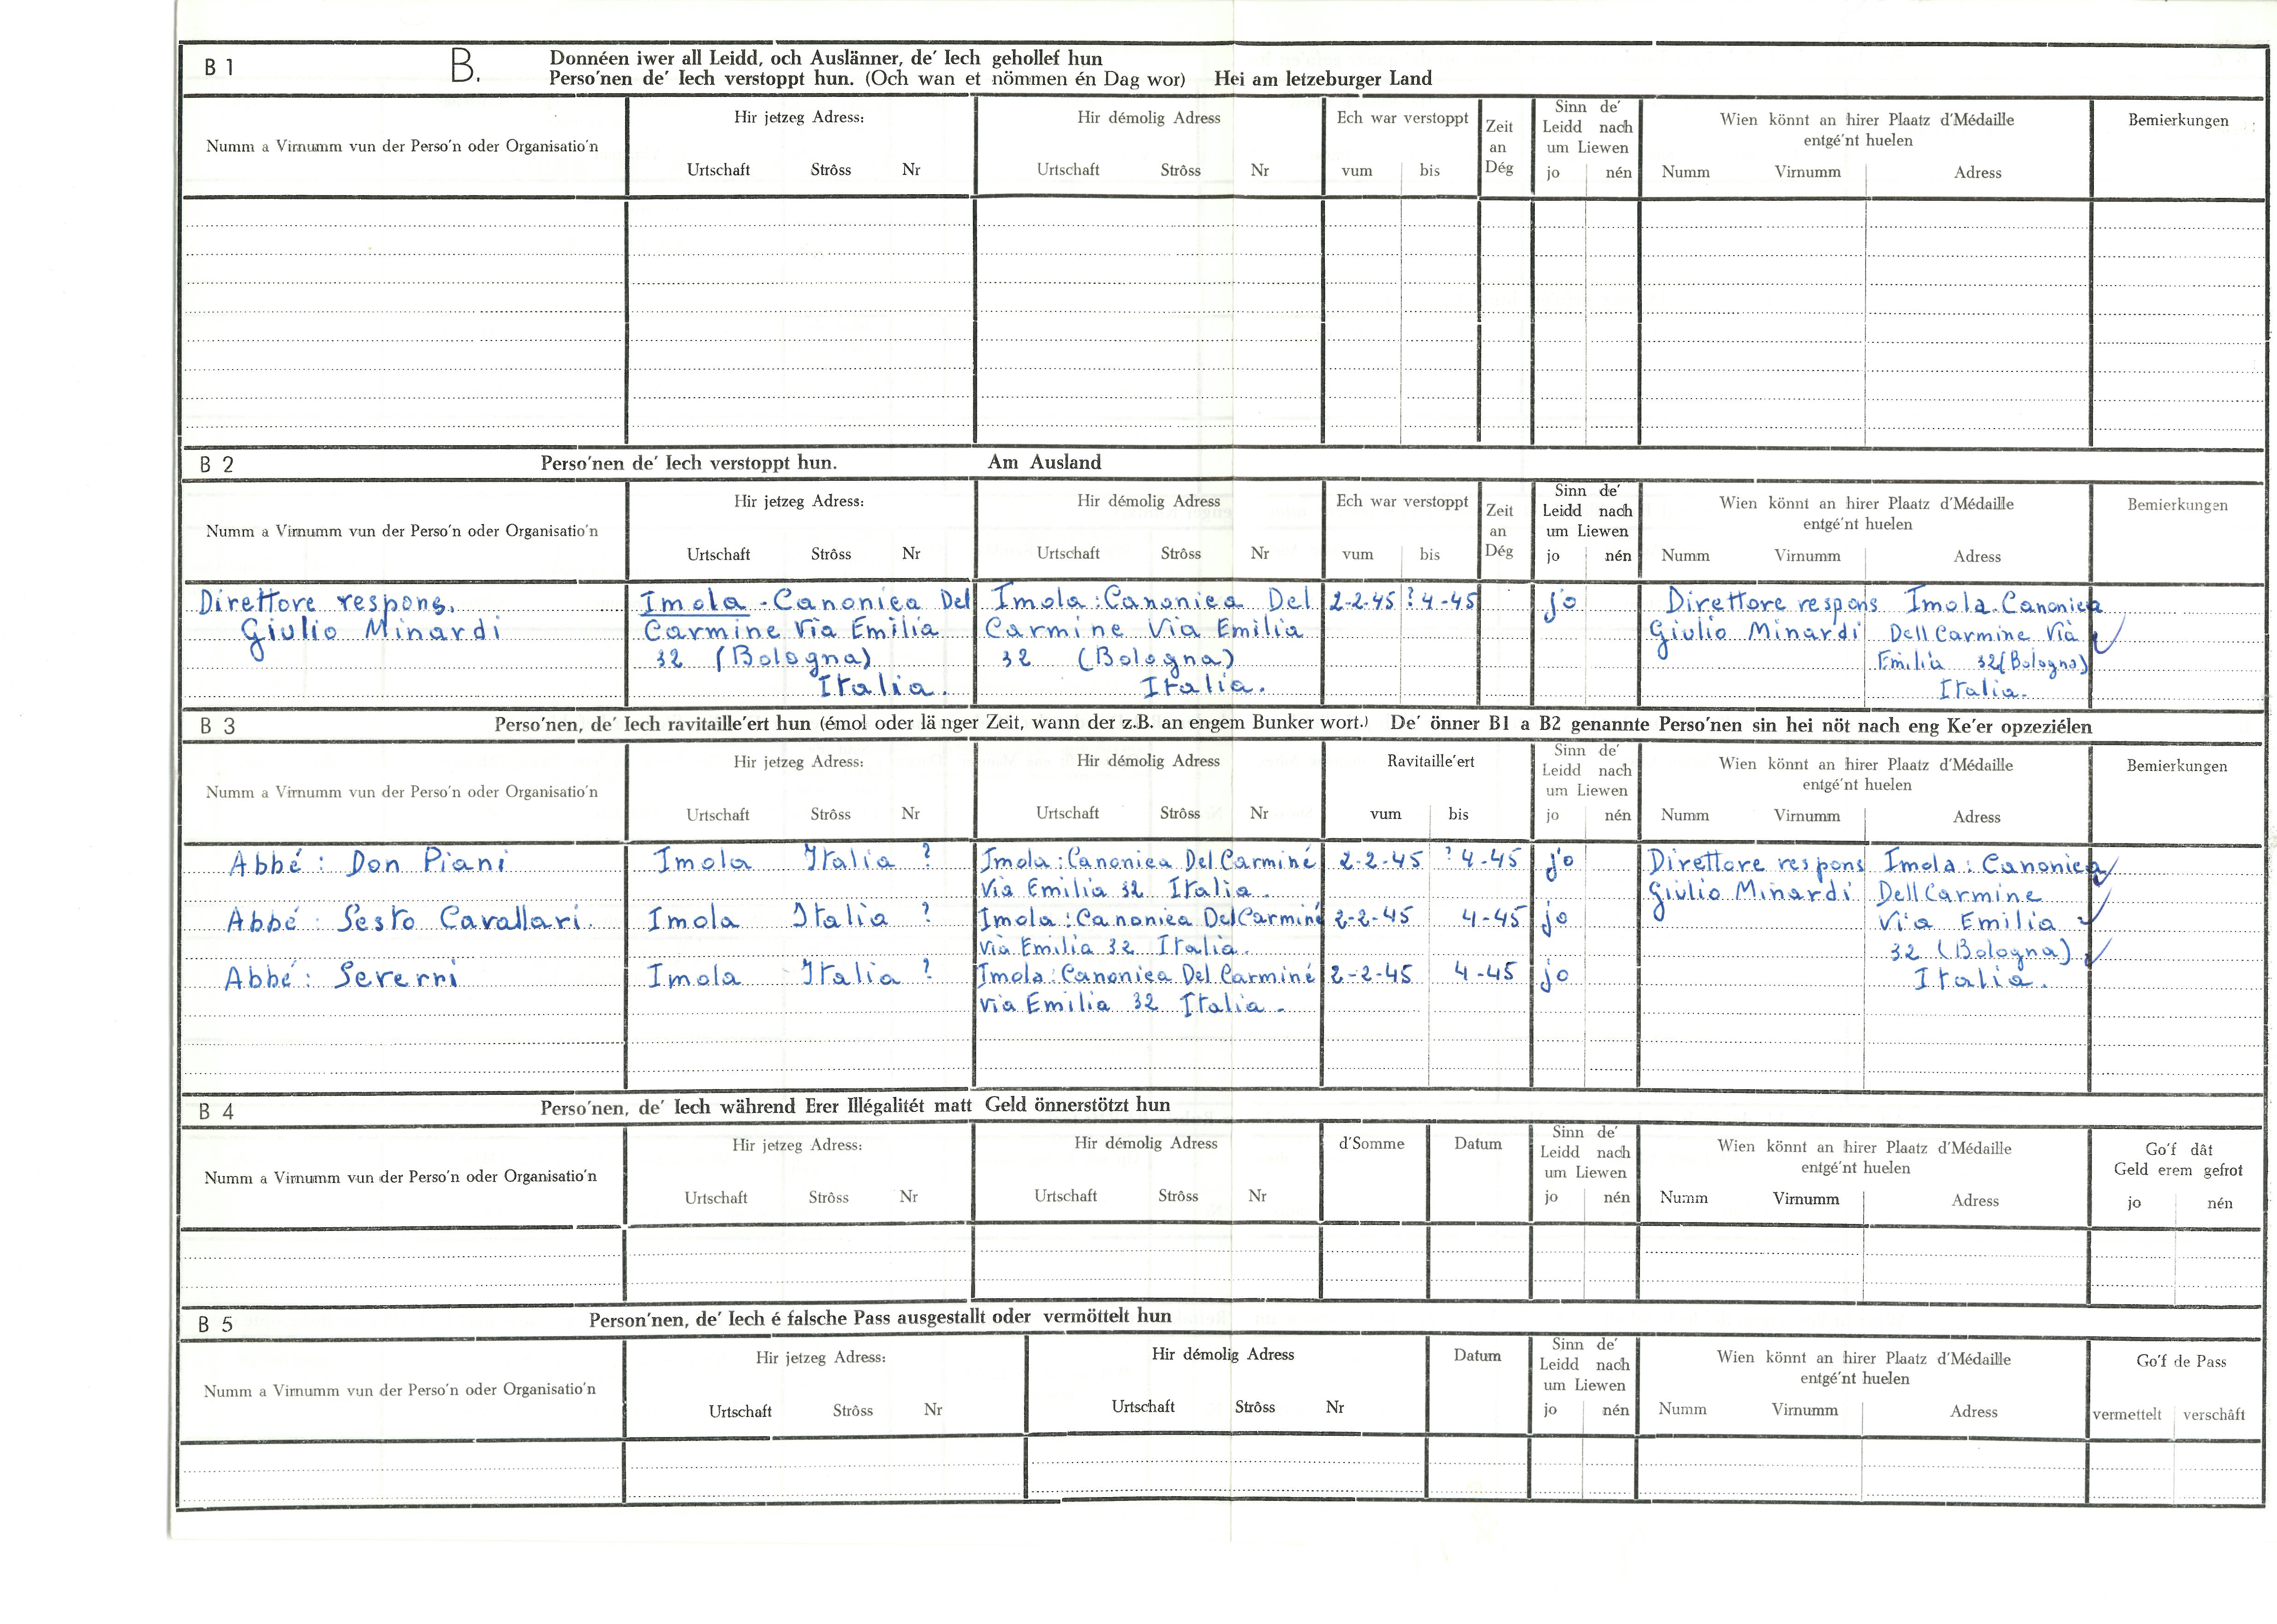 B 1
B.
Donnéen iwer all Leidd, och Auslänner, de′ Iech gehollef hun
Perso′nen de′ Iech verstoppt hun. (Och wan et nömmen én Dag wor) Hei am letzeburger Land
Numm a Virnumm vun der Perso′n oder Organisatio′n
Hir jetzeg Adress:
Urtschaft Strôss Nr
Hir démolig Adress
Urtschaft Strôss Nr
Ech war verstoppt
vum bis
Zeit
an
Dég
Sinn de′
Leidd nach
um Liewen
jo nén
Wien könnt an hirer Plaatz d′Médaille
entgé′nt huelen
Numm Virnumm Adress
Bemierkungen
B 2
Perso′nen de′ Iech verstoppt hun. Am Ausland
Numm a Virnumm vun der Perso′n oder Organisatio′n
Hir jetzeg Adress:
Urtschaft Strôss Nr
Hir démolig Adress
Urtschaft Strôss Nr
Ech war verstoppt
vum bis
Zeit
an
Dég
Sinn de′
Leidd nach
um Liewen
jo nén
Wien könnt an hirer Plaatz d′Médaille
entgé′nt huelen
Numm Virnumm Adress
Bemierkungen
Direttore respons. Imola - Canonica Del Imola : Canonica Del 2-2-45 ? 4-45 jo Direttore respons Imola. Canonica
Giulio Minardi Carmine Via Emilia Carmine Via Emilia Giulio Minardi Dell Carmine Via
32 (Bologna) 32 (Bologna) Emilia 32 (Bologna)
Italia. Italia. Italia.
B 3
Perso′nen, de′ Iech ravitaille′ert hun (émol oder lä nger Zeit, wann der z.B. an engem Bunker wort.) De′ önner B1 a B2 genannte Perso′nen sin hei nöt nach eng Ke′er opzeziélen
Numm a Virnumm vun der Perso′n oder Organisatio′n
Hir jetzeg Adress:
Urtschaft Strôss Nr
Hir démolig Adress
Urtschaft Strôss Nr
Ravitaille′ert
vum bis
Sinn de′
Leidd nach
um Liewen
jo nén
Wien könnt an hirer Plaatz d′Médaille
entgé′nt huelen
Numm Virnumm Adress
Bemierkungen
Abbé : Don Piani Imola Italia ? Imola : Canonica Del Carminé 2-2-45 ? 4-45 jo Direttore respons Imola : Canonica
Via Emilia 32 Italia. Giulio Minardi Dell Carmine
Abbé : Sesto Cavallari. Imola Italia ? Imola : Canonica Del Carminé 2-2-45 4-45 jo Via Emilia
Via Emilia 32 Italia. 32 (Bologna)
Abbé : Severni Imola Italia ? Imola : Canonica Del Carminé 2-2-45 4-45 jo Italia.
Via Emilia 32 Italia.
B 4
Perso′nen, de′ Iech während Erer Illégalitét matt Geld önnerstötzt hun
Numm a Virnumm vun der Perso′n oder Organisatio′n
Hir jetzeg Adress:
Urtschaft Strôss Nr
Hir démolig Adress
Urtschaft Strôss Nr
d′Somme
Datum
Sinn de′
Leidd nach
um Liewen
jo nén
Wien könnt an hirer Plaatz d′Médaille
entgé′nt huelen
Numm Virnumm Adress
Go′f dât
Geld erem gefrot
jo nén
B 5
Person′nen, de′ Iech é falsche Pass ausgestallt oder vermöttelt hun
Numm a Virnumm vun der Perso′n oder Organisatio′n
Hir jetzeg Adress:
Urtschaft Strôss Nr
Hir démolig Adress
Urtschaft Strôss Nr
Datum
Sinn de′
Leidd nach
um Liewen
jo nén
Wien könnt an hirer Plaatz d′Médaille
entgé′nt huelen
Numm Virnumm Adress
Go′f de Pass
vermettelt verschâft